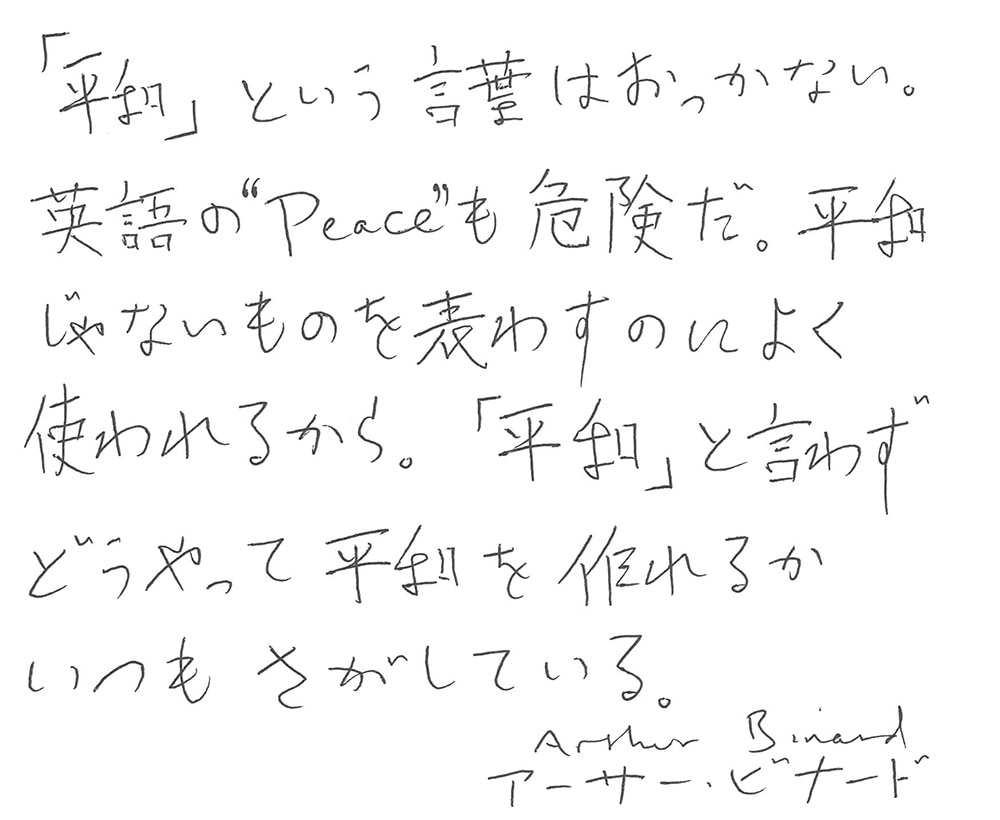 「平和」という言葉はおっかない。
英語の“Peace”も危険だ。平和
じゃないものを表わすのによく
使われるから。「平和」と言わず
どうやって平和を作れるか
いつもさがしている。
Arthur Binard
アーサー・ビナード